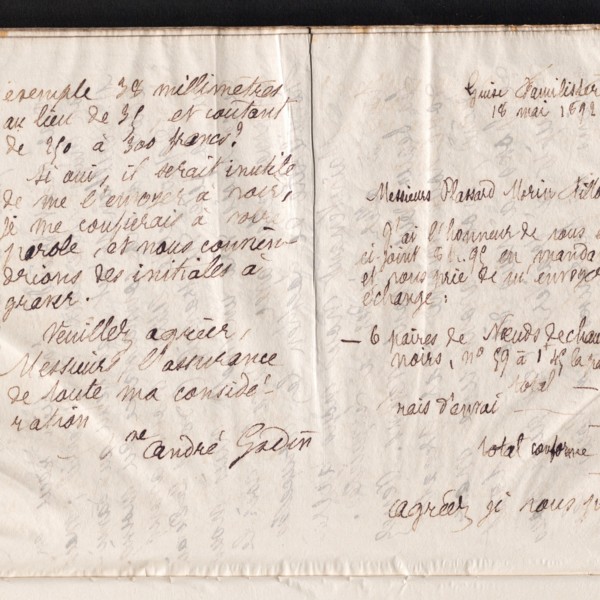 exemple 38 millimètres
au lieu de 35 et coûtant
de 250 à 300 francs?
Si oui, il serait inutile
de me l'envoyer à voir,
je me confierais à votre
parole, et nous convien-
drions des initiales à
graver.
Veuillez agréer,
Messieurs, l'assurance
de toute ma considé-
ration
ve André Godin
Guise Familistère
18 mai 1892
Messieurs Plassard Morin
J'ai l'honneur de vous
ci-joint en manda
et vous prie de m'envoyer
échange:
— 6 paires de Nœuds de chau
noirs, n° 59 à 1f 45 la
total
frais d'envoi
total conforme
agréez je vous p